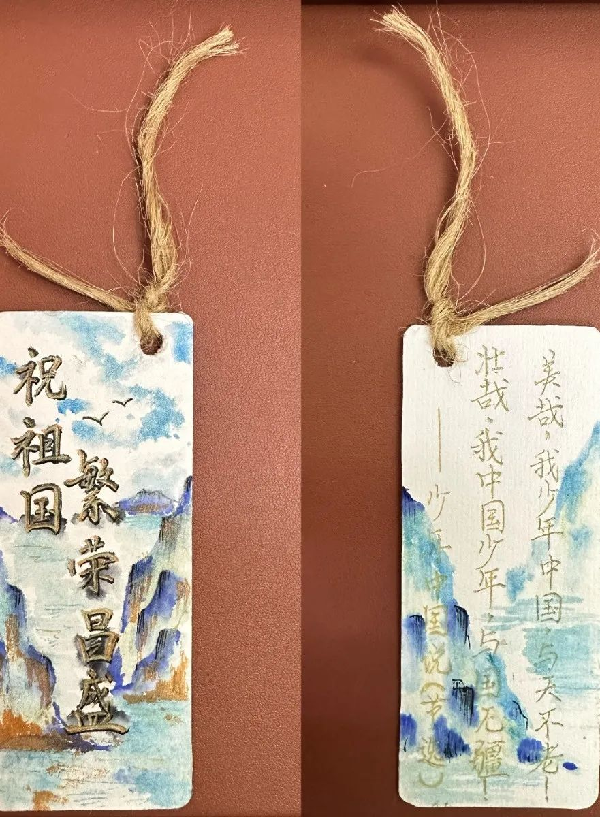 祝祖国
繁荣昌盛
美哉，我少年中国，与天不老！
壮哉，我中国少年，与国无疆！
——少年中国说（节选）